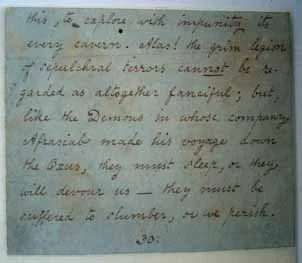 this, to explore with impunity its
every cavern. Alas! the grim legion
of sepulchral terrors cannot be re-
garded as altogether fanciful; but,
like the Demons in whose company
Afrasiab made his voyage down
the Oxus, they must sleep, or they
will devour us — they must be
suffered to slumber, or we perish.
30.